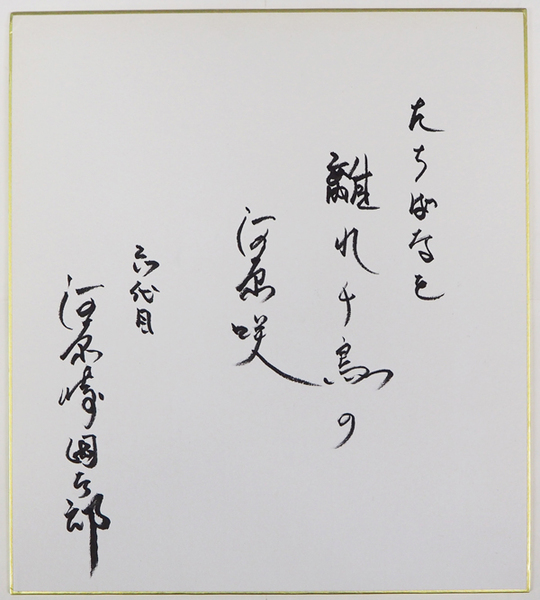 たちばなを
離れ千鳥の
河原咲
六代目
河原崎国太郎